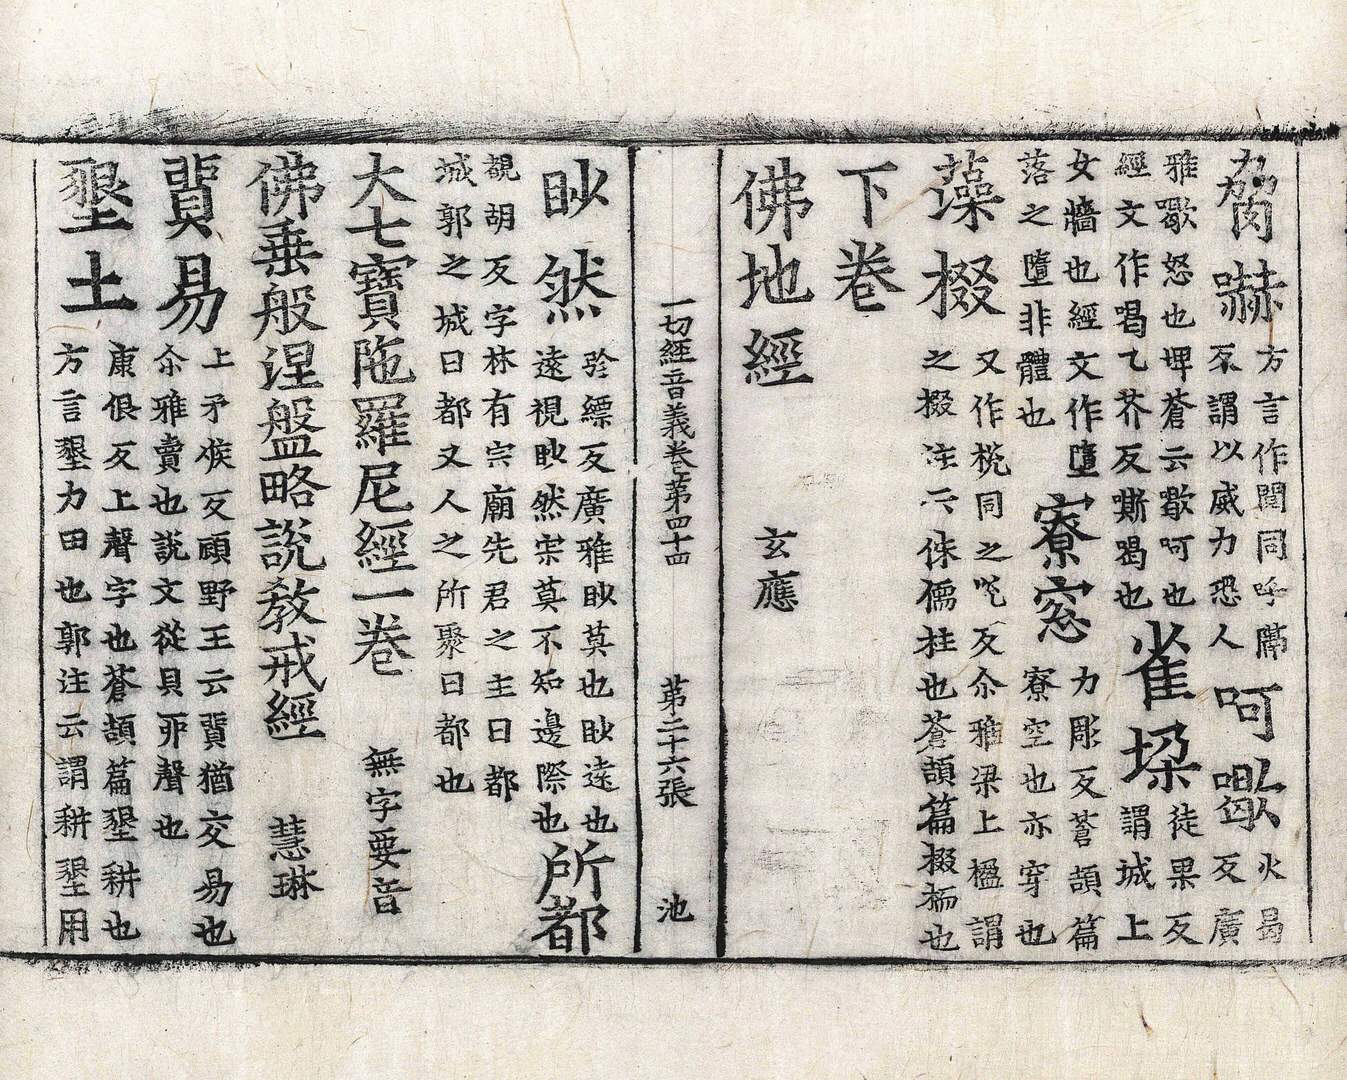 脅嚇方言作鬩同呼隔反謂以威力恐人呵㰤火曷反廣
雅㰤怒也埤蒼云㰤呵也經文作喝乙芥反嘶喝也雀垛徒果反謂城上
女牆也經文作墮落之墮非體也寮窓力彫反蒼頡篇寮空也亦穿也
藻棳又作棁同之兊反尒雅梁上楹謂之棳注云侏儒柱也蒼頡篇棳枬也
下卷
佛地經 玄應
一切經音義卷第四十四 第二十六張 池
眇然弥縹反廣雅眇莫也眇遠也遠視眇然寂莫不知邊際也所都
覩胡反字林有宗廟先君之主曰都城郭之城曰都又人之所聚曰都也
大七寶陁羅尼經一卷 無字要音
佛垂般涅盤略說教戒經 慧琳
貿易上矛候反顧野王云貿猶交易也尒雅賣也說文從貝丣聲也
墾土康佷反上聲字也蒼頡篇墾耕也方言墾力田也郭注云謂耕墾用